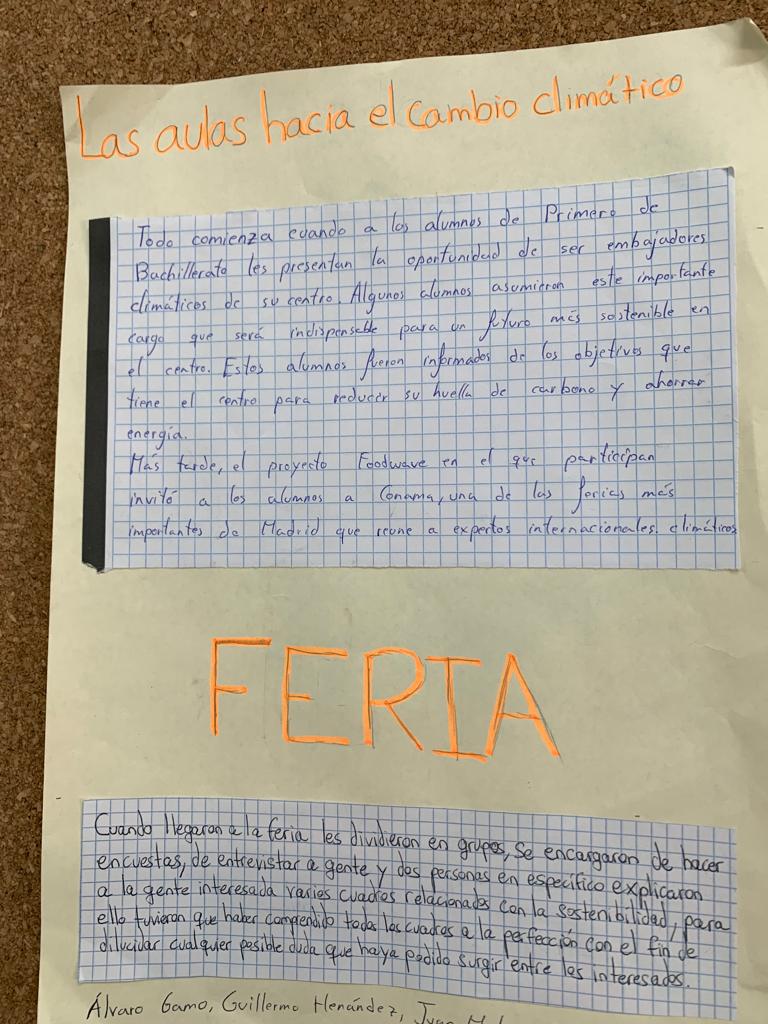 Las aulas hacia el cambio climático
Todo comienza cuando a los alumnos de Primero de
Bachillerato les presentan la oportunidad de ser embajadores
climáticos de su centro. Algunos alumnos asumieron este importante
cargo que será indispensable para un futuro más sostenible en
el centro. Estos alumnos fueron informados de los objetivos que
tiene el centro para reducir su huella de carbono y ahorrar
energía.
Más tarde, el proyecto Foodwave en el que participan
invitó a los alumnos a Conama, una de las ferias más
importantes de Madrid que reune a expertos internacionales climáticos
FERIA
Cuando llegaron a la feria les dividieron en grupos, se encargaron de hacer
encuestas, de entrevistar a gente y dos personas en específico explicaron
a la gente interesada varios cuadros relacionados con la sostenibilidad, para
ello tuvieron que haber comprendido todos los cuadros a la perfección con el fin de
dilucidar cualquier posible duda que haya podido surgir entre los interesados.
Álvaro Gamo, Guillermo Henández,